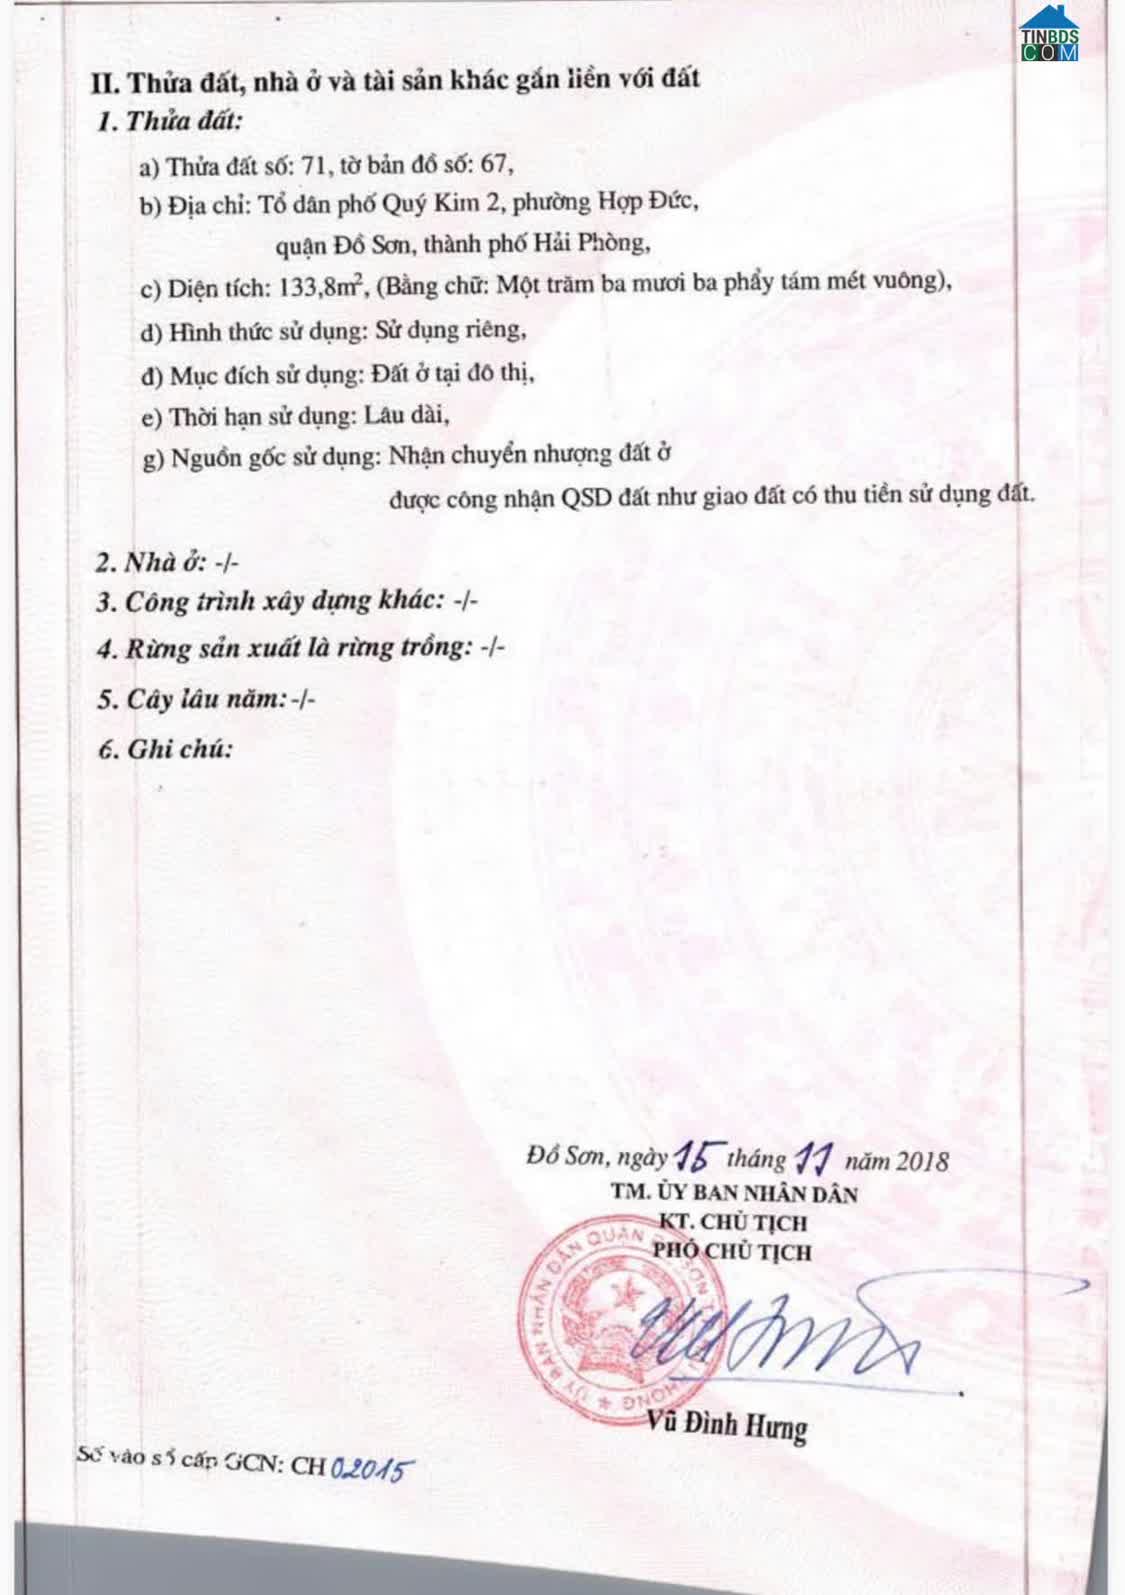 TINBDS
COM
II. Thửa đất, nhà ở và tài sản khác gắn liền với đất
1. Thửa đất:
a) Thửa đất số: 71, tờ bản đồ số: 67,
b) Địa chỉ: Tổ dân phố Quý Kim 2, phường Hợp Đức,
quận Đồ Sơn, thành phố Hải Phòng,
c) Diện tích: 133,8m², (Bằng chữ: Một trăm ba mươi ba phẩy tám mét vuông),
d) Hình thức sử dụng: Sử dụng riêng,
đ) Mục đích sử dụng: Đất ở tại đô thị,
e) Thời hạn sử dụng: Lâu dài,
g) Nguồn gốc sử dụng: Nhận chuyển nhượng đất ở
được công nhận QSD đất như giao đất có thu tiền sử dụng đất.
2. Nhà ở: -/-
3. Công trình xây dựng khác: -/-
4. Rừng sản xuất là rừng trồng: -/-
5. Cây lâu năm: -/-
6. Ghi chú:
Đồ Sơn, ngày 15 tháng 11 năm 2018
TM. ỦY BAN NHÂN DÂN
KT. CHỦ TỊCH
PHÓ CHỦ TỊCH
ỦY BAN NHÂN DÂN QUẬN
Vũ Đình Hưng
Số vào sổ cấp GCN: CH 02015